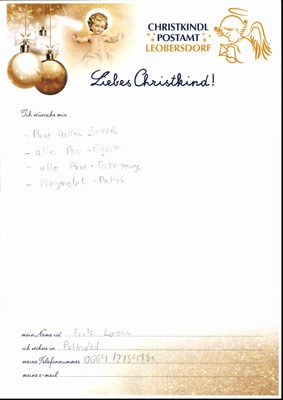 CHRISTKINDL
POSTAMT
LEOBERSDORF
Liebes Christkind!
Ich wünsche mir
- Paw Patrol
- alle Paw - Figuren
- alle Paw - Fahrzeuge
- Playmobil -
mein Name ist Fritz Lorenz
ich wohne in
meine Telefonnummer
meine e-mail